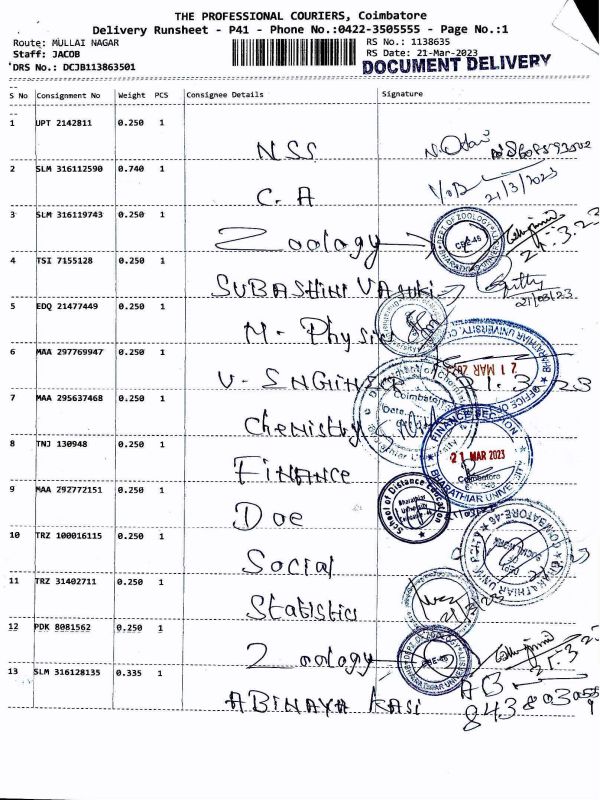 THE PROFESSIONAL COURIERS, Coimbatore
Delivery Runsheet - P41 - Phone No.:0422-3505555 - Page No.:1
Route: MULLAI NAGAR
RS No.: 1138635
Staff: JACOB
RS Date: 21-Mar-2023
DRS No.: DCJB113863501
DOCUMENT DELIVERY
S No Consignment No Weight PCS Consignee Details Signature
1 UPT 2142811 0.250 1
NSS
2 SLM 316112590 0.740 1
21/3/2023
C. A
3 SLM 316119743 0.250 1
Zoology
DEPT OF ZOOLOGY
CBE-46
21.3.23
4 TSI 7155128 0.250 1
SUBASHINI VASUKI
21/03/23
5 EDQ 21477449 0.250 1
M - Physics
6 MAA 297769947 0.250 1
BHARATHIAR UNIVERSITY
OFFICE OF
21 MAR 2023
U - ENGINEER
21.3.23
7 MAA 295637468 0.250 1
Coimbatore
Date
Chemistry
8 TNJ 130948 0.250 1
FINANCE SECTION
21 MAR 2023
Coimbatore
BHARATHIAR UNIVERSITY
FINANCE
9 MAA 292772151 0.250 1
School of Distance Education
Bharathiar
University
Doe
10 TRZ 100016115 0.250 1
COIMBATORE-46
BHARATHIAR UNIVERSITY
SOCIAL WORK
Social
11 TRZ 31402711 0.250 1
Statistics
12 PDK 8081562 0.250 1
Zoology
CBE-46
21.3.23
13 SLM 316128135 0.335 1
ABINAYA KASI